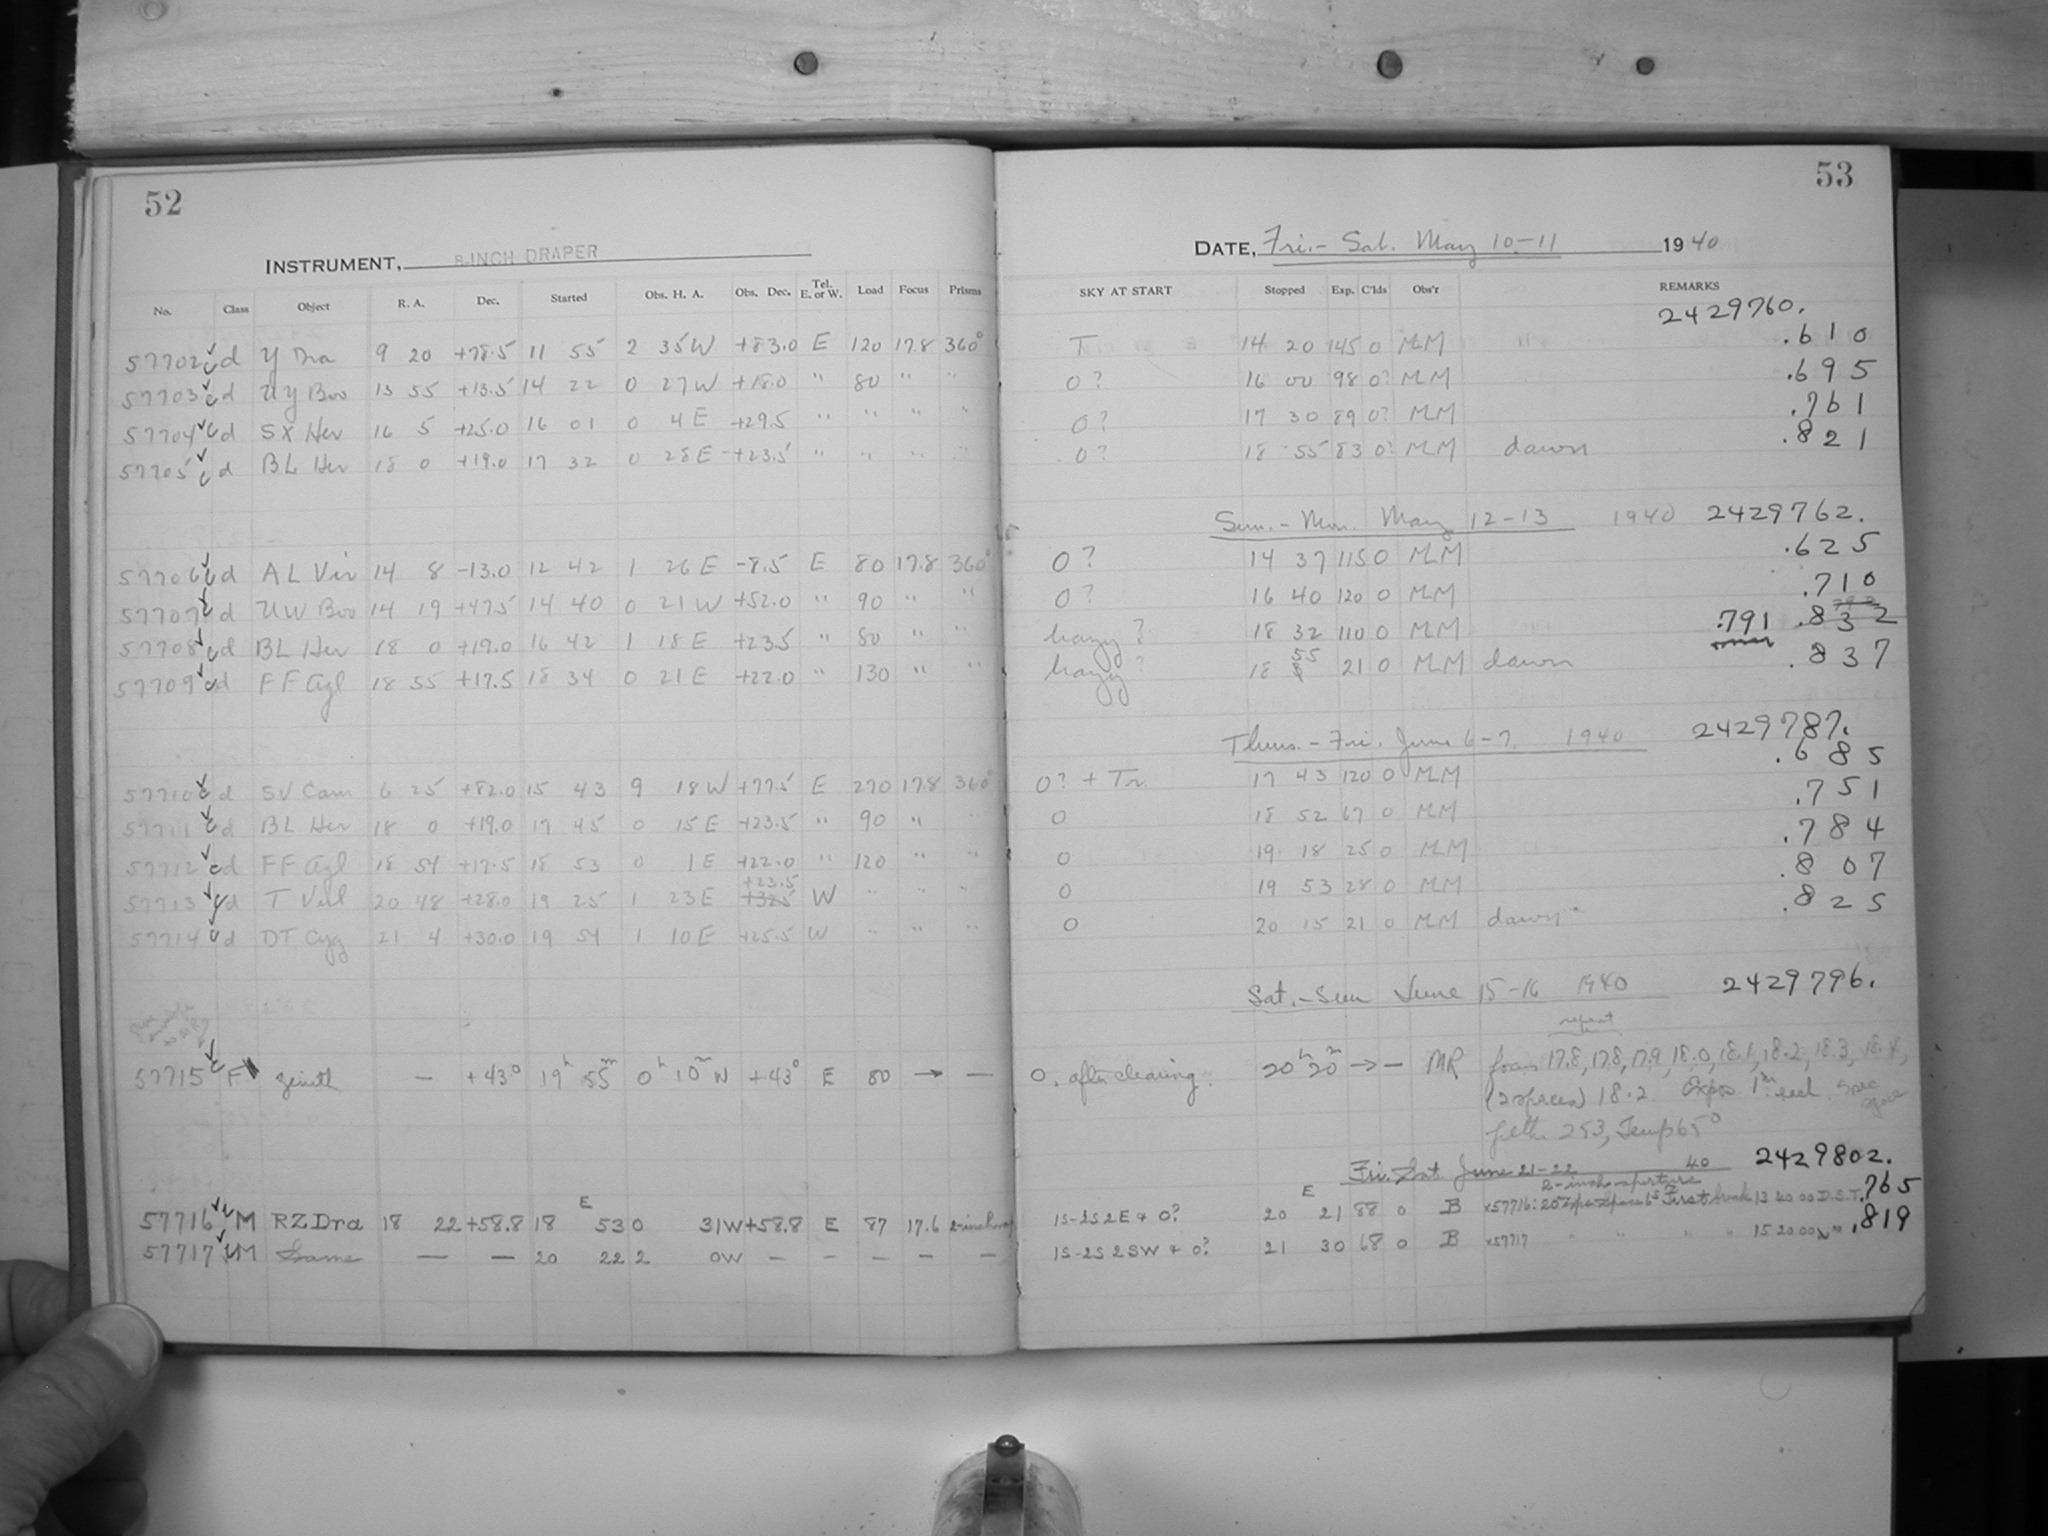 52
INSTRUMENT, 8-INCH DRAPER
No. Class Object R. A. Dec. Started Obs. H. A. Obs. Dec. Tel. E. or W. Load Focus Prisms
57702 d Y Dra 9 20 +78.5 11 55 2 35W +83.0 E 120 17.8 360°
57703 d UY Boo 13 55 +13.5 14 22 0 27W +18.0 " 80 " "
57704 d SX Her 16 5 +25.0 16 01 0 4E +29.5 " " " "
57705 d BL Her 18 0 +19.0 17 32 0 28E +23.5 " " " "
57706 d AL Vir 14 8 -13.0 12 42 1 26 E -8.5 E 80 17.8 360°
57707 d UW Boo 14 19 +47.5 14 40 0 21W +52.0 " 90 " "
57708 d BL Her 18 0 +19.0 16 42 1 18E +23.5 " 80 " "
57709 d FF Aql 18 55 +17.5 18 34 0 21E +22.0 " 130 " "
57710 d SV Cam 6 25 +82.0 15 43 9 18W +77.5 E 270 17.8 360°
57711 d BL Her 18 0 +19.0 17 45 0 15E +23.5 " 90 " "
57712 d FF Aql 18 54 +17.5 18 53 0 1E +22.0 " 120 " "
57713 d T Vul 20 48 +28.0 19 25 1 23E +23.5 W " " "
57714 d DT Cyg 21 4 +30.0 19 54 1 10E +25.5 W " " "
57715 F zenith — +43° 19h 55m 0h 10m W +43° E 80 → —
57716 M RZ Dra 18 22 +58.8 18 E 53 0 31W +58.8 E 87 17.6
57717 M Same — — 20 22 2 0W — — — — —
53
DATE, Fri.- Sat. May 10-11 1940
SKY AT START Stopped Exp. C'lds Obs'r REMARKS
2429760.
T 14 20 145 0 MM .610
0? 16 00 98 0? MM .695
0? 17 30 89 0? MM .761
0? 18 55 83 0? MM dawn .821
Sun.- Mon. May 12-13 1940 2429762.
0? 14 37 115 0 MM .625
0? 16 40 120 0 MM .710
hazy? 18 32 110 0 MM .791 .832
hazy? 18 55 21 0 MM dawn .837
Thurs.- Fri. June 6-7 1940 2429787.
0? + Tr. 17 43 120 0 MM .685
0 18 52 67 0 MM .751
0 19 18 25 0 MM .784
0 19 53 28 0 MM .807
0 20 15 21 0 MM dawn .825
Sat.- Sun June 15-16 1940 2429796.
repeat
0, after clearing. 20h 20m → — MR focus 17.8, 17.8, 17.9, 18.0, 18.1, 18.2, 18.3, 18.4,
(2 spaces) 18.2 Expos. 1m each
253, Temp 65°
Fri. Sat June 21-22 40 2429802.
2-inch aperture
1S-2S 2E & 0? 20 E 21 88 0 B x57716: First 13 40 00 D.S.T. .765
1S-2S 2SW & 0? 21 30 68 0 B x57717 " " " " 15 20 00 .819